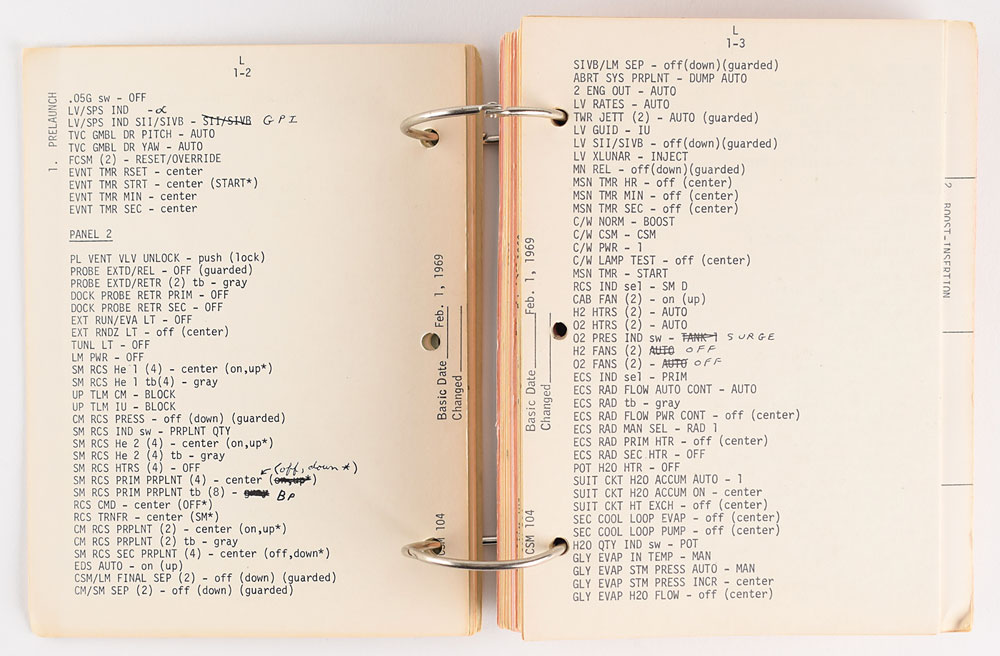 L
1-2
1. PRELAUNCH
.05G sw - OFF
LV/SPS IND -α
LV/SPS IND SII/SIVB - SII/SIVB GPI
TVC GMBL DR PITCH - AUTO
TVC GMBL DR YAW - AUTO
FCSM (2) - RESET/OVERRIDE
EVNT TMR RSET - center
EVNT TMR STRT - center (START*)
EVNT TMR MIN - center
EVNT TMR SEC - center
PANEL 2
PL VENT VLV UNLOCK - push (lock)
PROBE EXTD/REL - OFF (guarded)
PROBE EXTD/RETR (2) tb - gray
DOCK PROBE RETR PRIM - OFF
DOCK PROBE RETR SEC - OFF
EXT RUN/EVA LT - OFF
EXT RNDZ LT - off (center)
TUNL LT - OFF
LM PWR - OFF
SM RCS He 1 (4) - center (on,up*)
SM RCS He 1 tb(4) - gray
UP TLM CM - BLOCK
UP TLM IU - BLOCK
CM RCS PRESS - off (down) (guarded)
SM RCS IND sw - PRPLNT QTY
SM RCS He 2 (4) - center (on,up*)
SM RCS He 2 (4) tb - gray
SM RCS HTRS (4) - OFF
(off, down*)
SM RCS PRIM PRPLNT (4) - center (on,up*)
SM RCS PRIM PRPLNT tb (8) - gray BP
RCS CMD - center (OFF*)
RCS TRNFR - center (SM*)
CM RCS PRPLNT (2) - center (on,up*)
CM RCS PRPLNT (2) tb - gray
SM RCS SEC PRPLNT (4) - center (off,down*)
EDS AUTO - on (up)
CSM/LM FINAL SEP (2) - off (down) (guarded)
CM/SM SEP (2) - off (down) (guarded)
Basic Date Feb. 1, 1969
Changed
CSM 104
L
1-3
SIVB/LM SEP - off(down)(guarded)
ABRT SYS PRPLNT - DUMP AUTO
2 ENG OUT - AUTO
LV RATES - AUTO
TWR JETT (2) - AUTO (guarded)
LV GUID - IU
LV SII/SIVB - off(down)(guarded)
LV XLUNAR - INJECT
MN REL - off(down)(guarded)
MSN TMR HR - off (center)
MSN TMR MIN - off (center)
MSN TMR SEC - off (center)
C/W NORM - BOOST
C/W CSM - CSM
C/W PWR - 1
C/W LAMP TEST - off (center)
MSN TMR - START
RCS IND sel - SM D
CAB FAN (2) - on (up)
H2 HTRS (2) - AUTO
O2 HTRS (2) - AUTO
O2 PRES IND sw - TANK 1 SURGE
H2 FANS (2) AUTO OFF
O2 FANS (2) - AUTO OFF
ECS IND sel - PRIM
ECS RAD FLOW AUTO CONT - AUTO
ECS RAD tb - gray
ECS RAD FLOW PWR CONT - off (center)
ECS RAD MAN SEL - RAD 1
ECS RAD PRIM HTR - off (center)
ECS RAD SEC HTR - OFF
POT H2O HTR - OFF
SUIT CKT H2O ACCUM AUTO - 1
SUIT CKT H2O ACCUM ON - center
SUIT CKT HT EXCH - off (center)
SEC COOL LOOP EVAP - off (center)
SEC COOL LOOP PUMP - off (center)
H2O QTY IND sw - POT
GLY EVAP IN TEMP - MAN
GLY EVAP STM PRESS AUTO - MAN
GLY EVAP STM PRESS INCR - center
GLY EVAP H2O FLOW - off (center)
Basic Date Feb. 1, 1969
Changed
CSM 104
2 BOOST-INSERTION